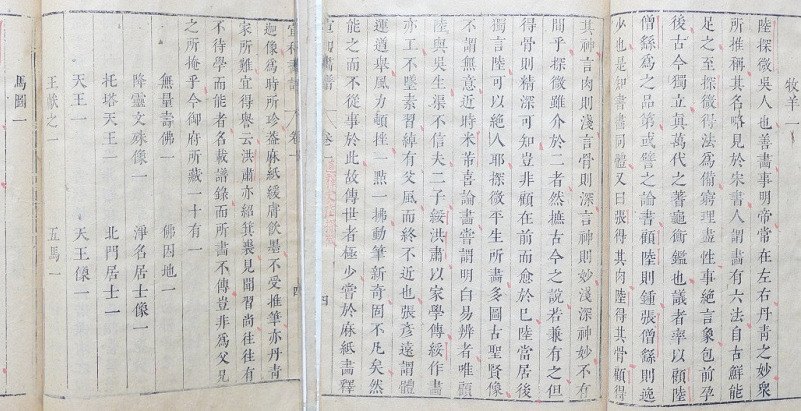 牧羊一
陸探微吳人也善畫事明帝常在左右丹青之妙衆
所推稱其名略見於宋書人謂畫有六法自古鮮能
足之至探微得法爲備窮理盡性事絕言象包前孕
後古今獨立眞萬代之蓍龜衡鑑也議者率以顧陸
僧繇爲之品第或譬之論書顧陸則鍾張僧繇則逸
少也是知書畫同體又曰張得其肉陸得其骨顧得
其神言肉則淺言骨則深言神則妙淺深神妙不有
間乎探微雖介於二者然摭古今之說若兼有之但
得骨則精深可知豈非顧在前而愈於已陸當居後
獨言陸可以絕人耶探微平生所畫多圖古聖賢像
不謂無意近時米芾喜論畫嘗謂明白易辨者唯顧
陸與吳生渠不信夫二子綏洪肅以家學傳綏作畫
亦工不墜素習綽有父風而終不近也張彥遠謂體
運遒舉風力頓挫一點一拂動筆新奇固不凡矣然
能之而不從事於此故傳世者極少嘗於麻紙畫釋
宣和畫譜 卷一 四
宣和畫譜 卷一 四
迦像爲時所珍蓋麻紙緩膚飲墨不受推筆亦丹青
家所難宜得譽云洪肅亦紹箕裘見聞習尚往往有
不待學而能者名載譜錄而所畫不傳豈非爲父兄
之所掩乎今御府所藏十有一
無量壽佛一 佛因地一
降靈文殊像一 淨名居士像一
托塔天王一 北門居士一
天王一 天王像一
王獻之一 五馬一
馬圖一